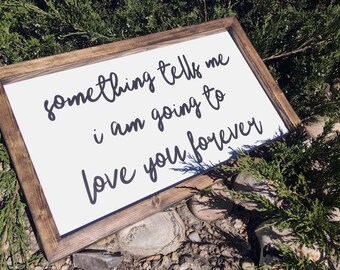 something tells me
i am going to
love you forever